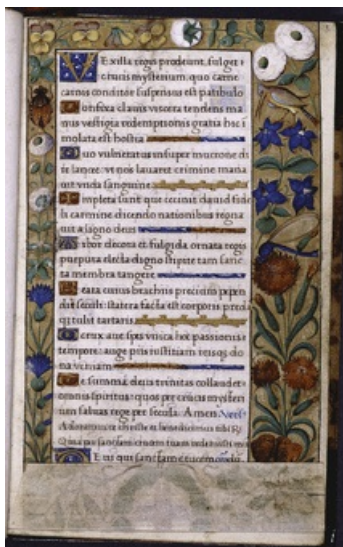 Vexilla regis prodeunt, fulget c
rucis mysterium, quo carne
carnis conditor suspensus est patibulo
Confixa clavis viscera tendens ma
nus vestigia redemptionis gratia hec i
molata est hostia
Quo vulneratus insuper mucrone di
re lancee, ut nos lavaret crimine mana
vit unda sanguine
Impleta sunt que cecinit david fide
li carmine dicendo nationibus regna
vit a ligno deus
Arbor decora et fulgida ornata regis
purpura electa digno stipite tam sanc
ta membra tangere
Beata cuius brachiis precium pepen
dit seculi statera facta est corporis preda
tulit tartaris
O crux ave spes unica hoc passionis
tempore auge piis iustitiam reisq; do
na veniam
Te summa deus trinitas collaudet
omnis spiritus quos per crucis mysteri
um salvas rege per secula. Amen
Adoramus te christe et benedicimus tibi
Quia per sanctam crucem tuam
Deus qui sanctam crucem